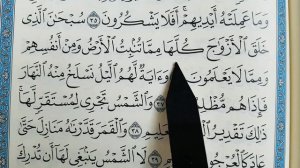 وَمَا عَمِلَتْهُ أَيْدِيهِمْ أَفَلَا يَشْكُرُونَ ٣٥ سُبْحَٰنَ ٱلَّذِى
خَلَقَ ٱلْأَزْوَٰجَ كُلَّهَا مِمَّا تُنۢبِتُ ٱلْأَرْضُ وَمِنْ أَنفُسِهِمْ
وَمِمَّا لَا يَعْلَمُونَ ٣٦ وَءَايَةٌ لَّهُمُ ٱلَّيْلُ نَسْلَخُ مِنْهُ ٱلنَّهَارَ
فَإِذَا هُم ٣٧ وَٱلشَّمْسُ تَجْرِى لِمُسْتَقَرٍّ لَّهَا
ذَٰلِكَ تَقْدِيرُ ٣٨ وَٱلْقَمَرَ قَدَّرْنَٰهُ مَنَازِلَ حَتَّىٰ
عَادَ كَٱلْعُرْجُونِ ٣٩ لَا ٱلشَّمْسُ يَنۢبَغِى لَهَآ أَن تُدْرِكَ